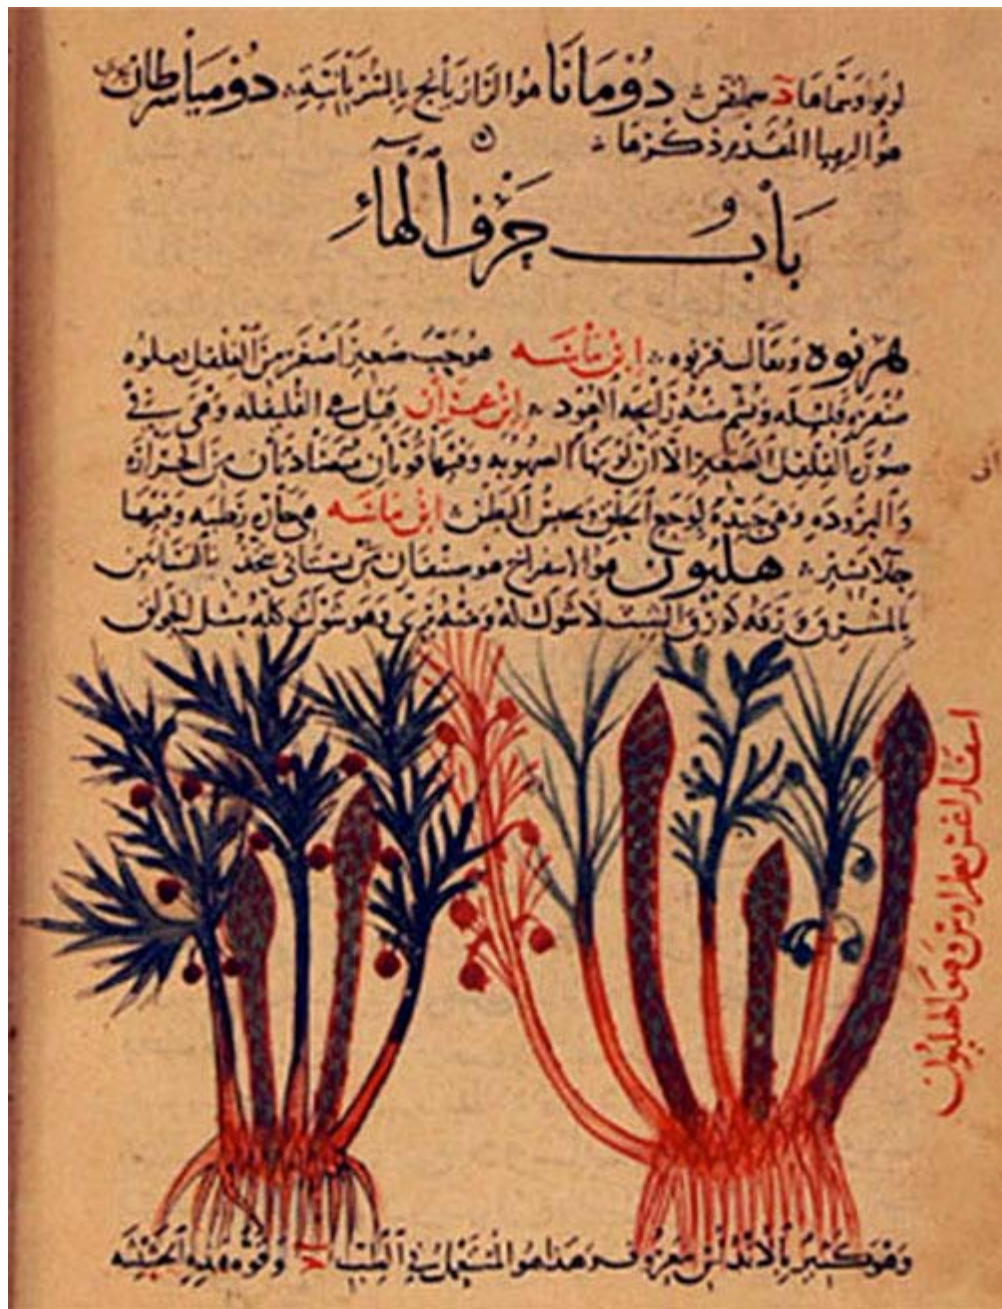 دُومَانَا هو الرازيانج بالسريانية دُومياسرطان
هو الرهيا المقدم ذكرها
بَابُ حَرْفُ الْهَاءِ
هرنوه ويقال قرنوه ابن ماسه هو حب صغير اصغر من الفلفل يعلوه
صفره قليله ويشم منه رائحه العود ابن عمران قيل هي الفليفله وهي في
صورة الفلفل الصغير الا ان لونها الصهوبه وفيها قوتان متضادتان من الحراره
والبروده وهي جيده لوجع الحلق وتحبس البطن ابن ماسه هي حاره رطبه وفيها
جلا يسير هليون هو الاسفراج هو صنفان بستاني يتخذ بالبساتين
بالمشرق ورقه كورق الشبت لا شوك له ومنه بري وهو شوك كله مثل الجولق
وهو كثير بالاندلس معروف هذا هو المستعمل في الطب وقوة هذه الحشيشه
وهو الهليون